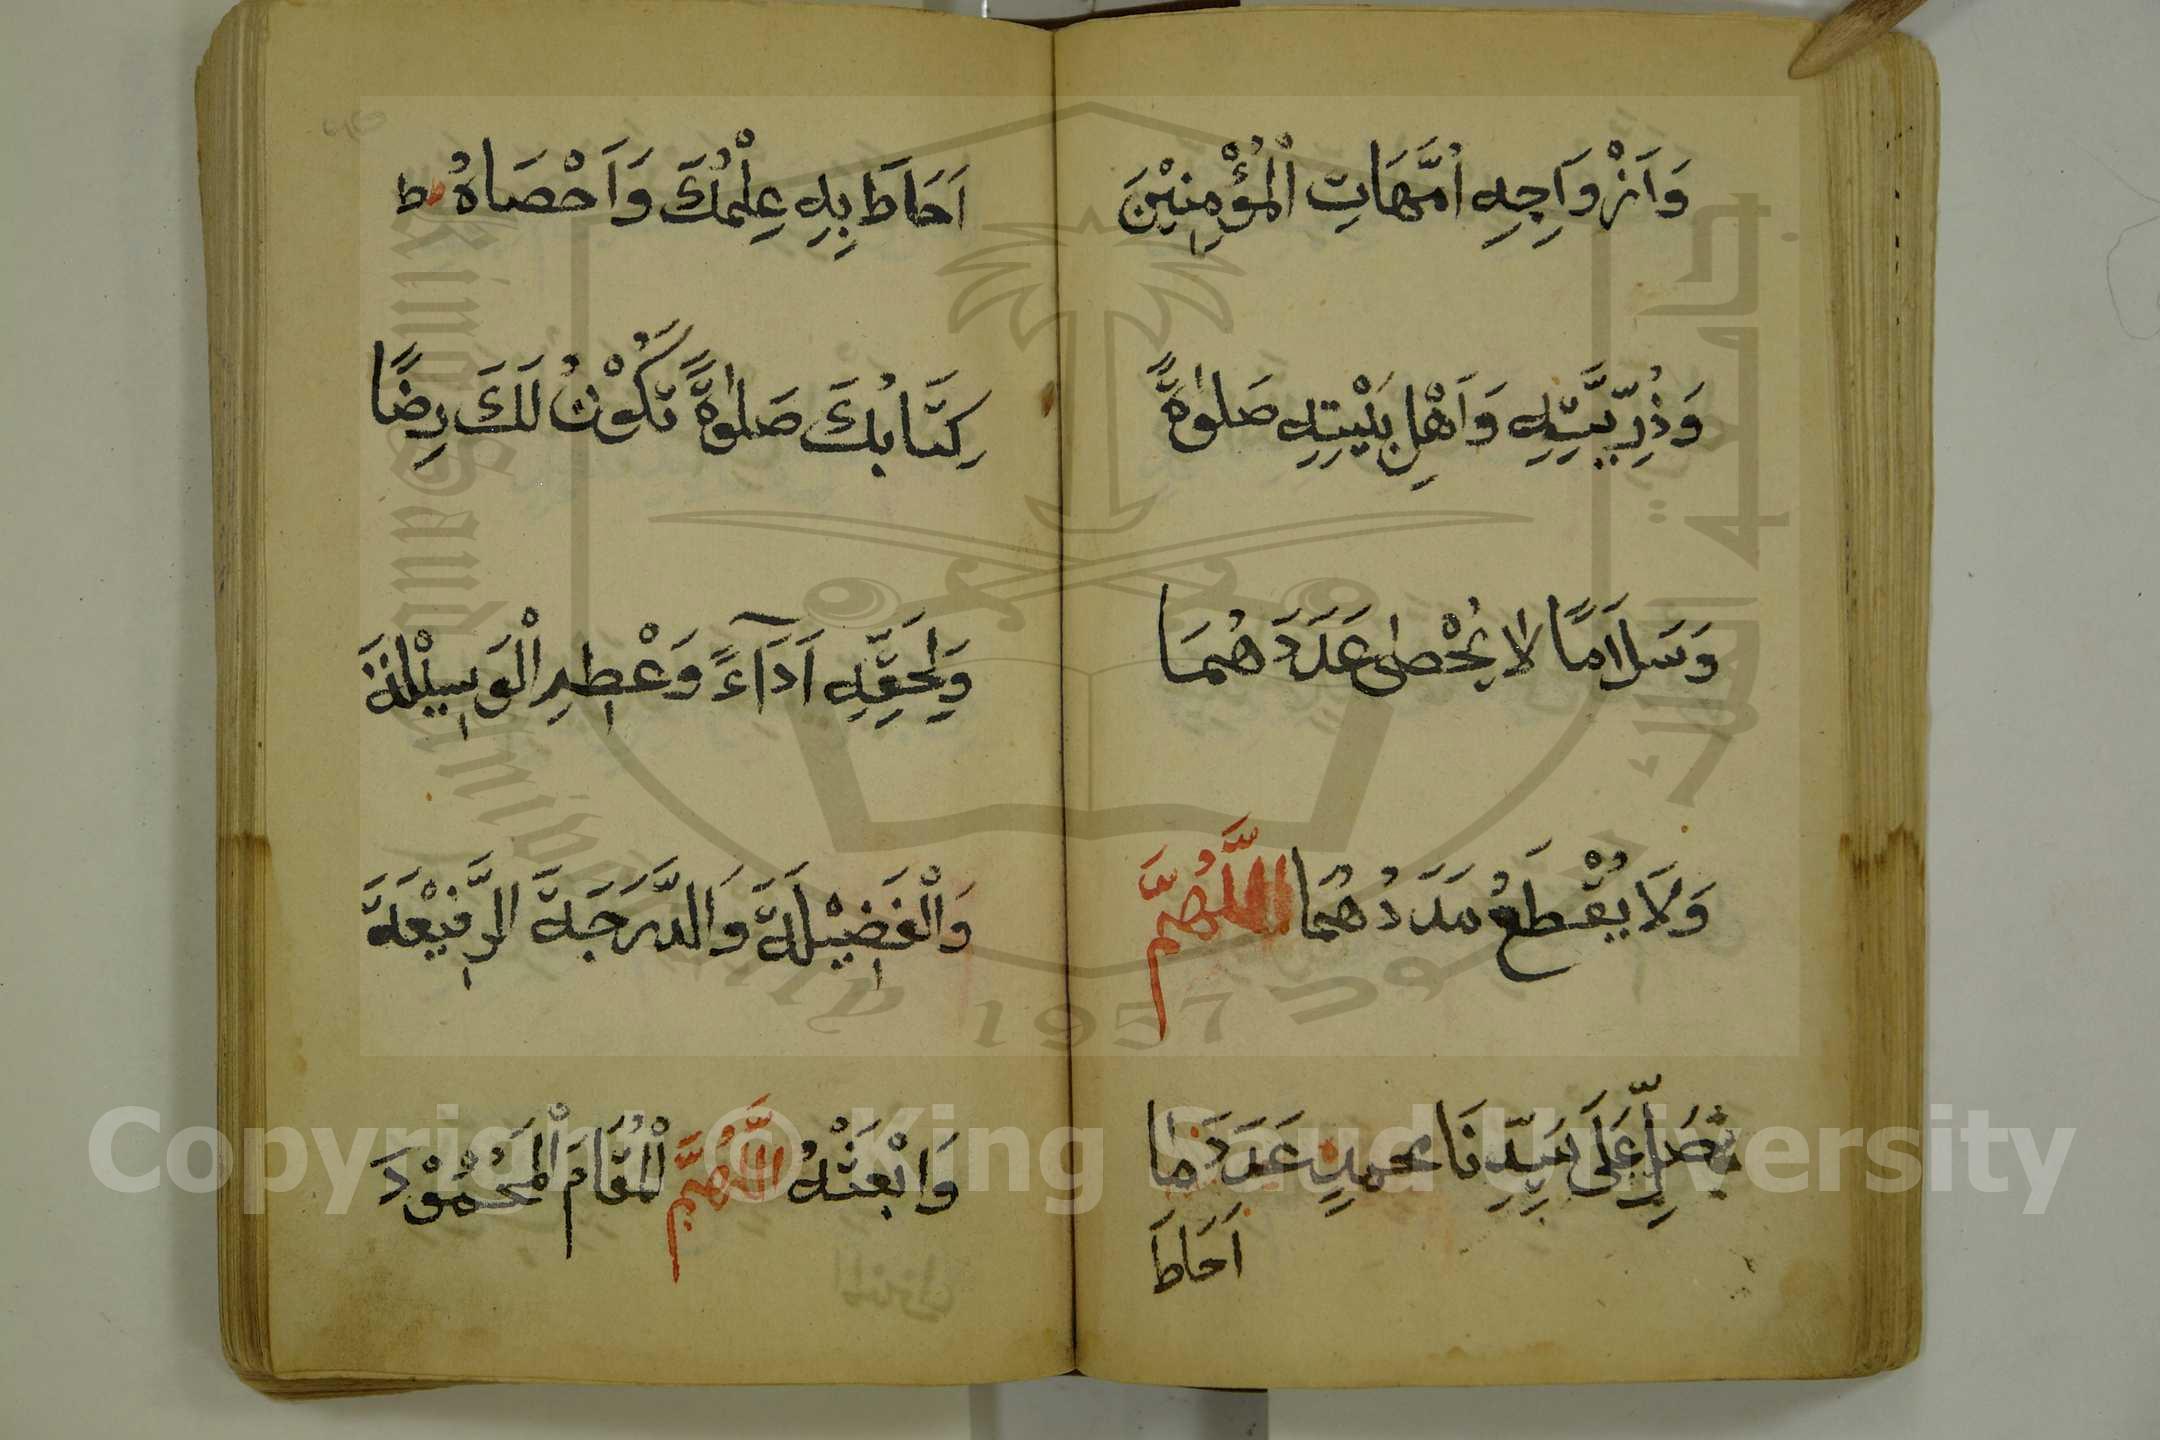 وَاَزْوَاجِهِ اُمَّهَاتِ الْمُؤْمِنِيْنَ
وَذُرِّيَّتِهِ وَاَهْلِ بَيْتِهِ صَلٰوةً
وَسَلَامًا لَا يُحْصٰى عَدَدَهُمَا
وَلَا يُقْطَعُ مَدَدُهُمَا اَللّٰهُمَّ
صَلِّ عَلَى سَيِّدِنَا مُحمدٍ عَدَدَ مَا
اَحَاطَ
اَحَاطَ بِهِ عِلْمُكَ وَاَحْصَاهُ ط
كِتَابُكَ صَلٰوةً تَكُوْنُ لَكَ رِضًا
وَلِحَقِّهِ اَدَآءً وَعْطِهِ الْوَسِيْلَةَ
وَالْفَضِيْلَةَ وَالدَّرَجَةَ الرَّفِيْعَةَ
وَابْعَثْهُ اللّٰهُمَّ الْمُقَامَ الْمَحْمُوْدَ
جامعة الملك سعود
King Saud University
1957
Copyright © King Saud University